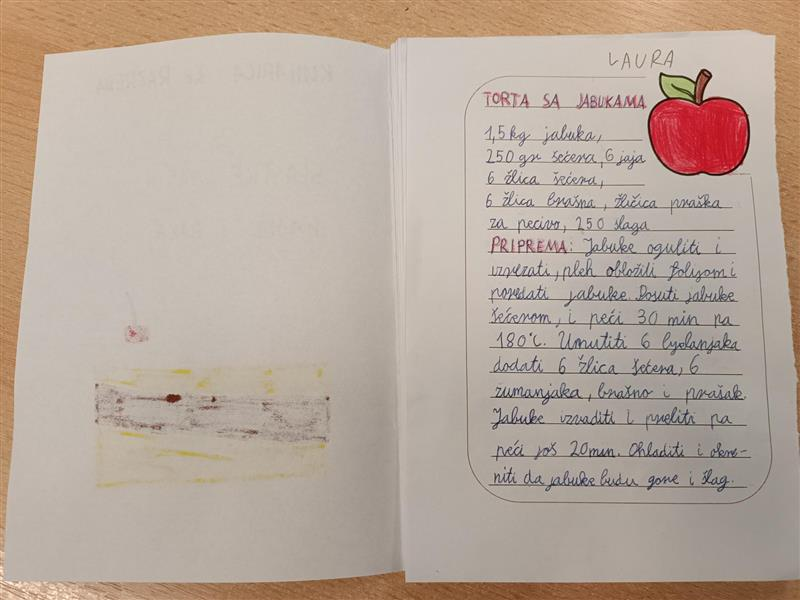 LAURA
TORTA SA JABUKAMA
1,5 kg jabuka,
250 gr šećera, 6 jaja
6 žlica šećera,
6 žlica brašna, žličica praška
za pecivo, 250 šlaga
PRIPREMA: Jabuke oguliti i
izrezati, pleh obložiti folijom i
poredati jabuke. Posuti jabuke
šećerom, i peći 30 min na
180°C. Umutiti 6 bjelanjaka
dodati 6 žlica šećera, 6
žumanjaka, brašno i prašak.
Jabuke izvaditi i preliti pa
peći još 20 min. Ohladiti i okre-
niti da jabuke budu gore i šlag.